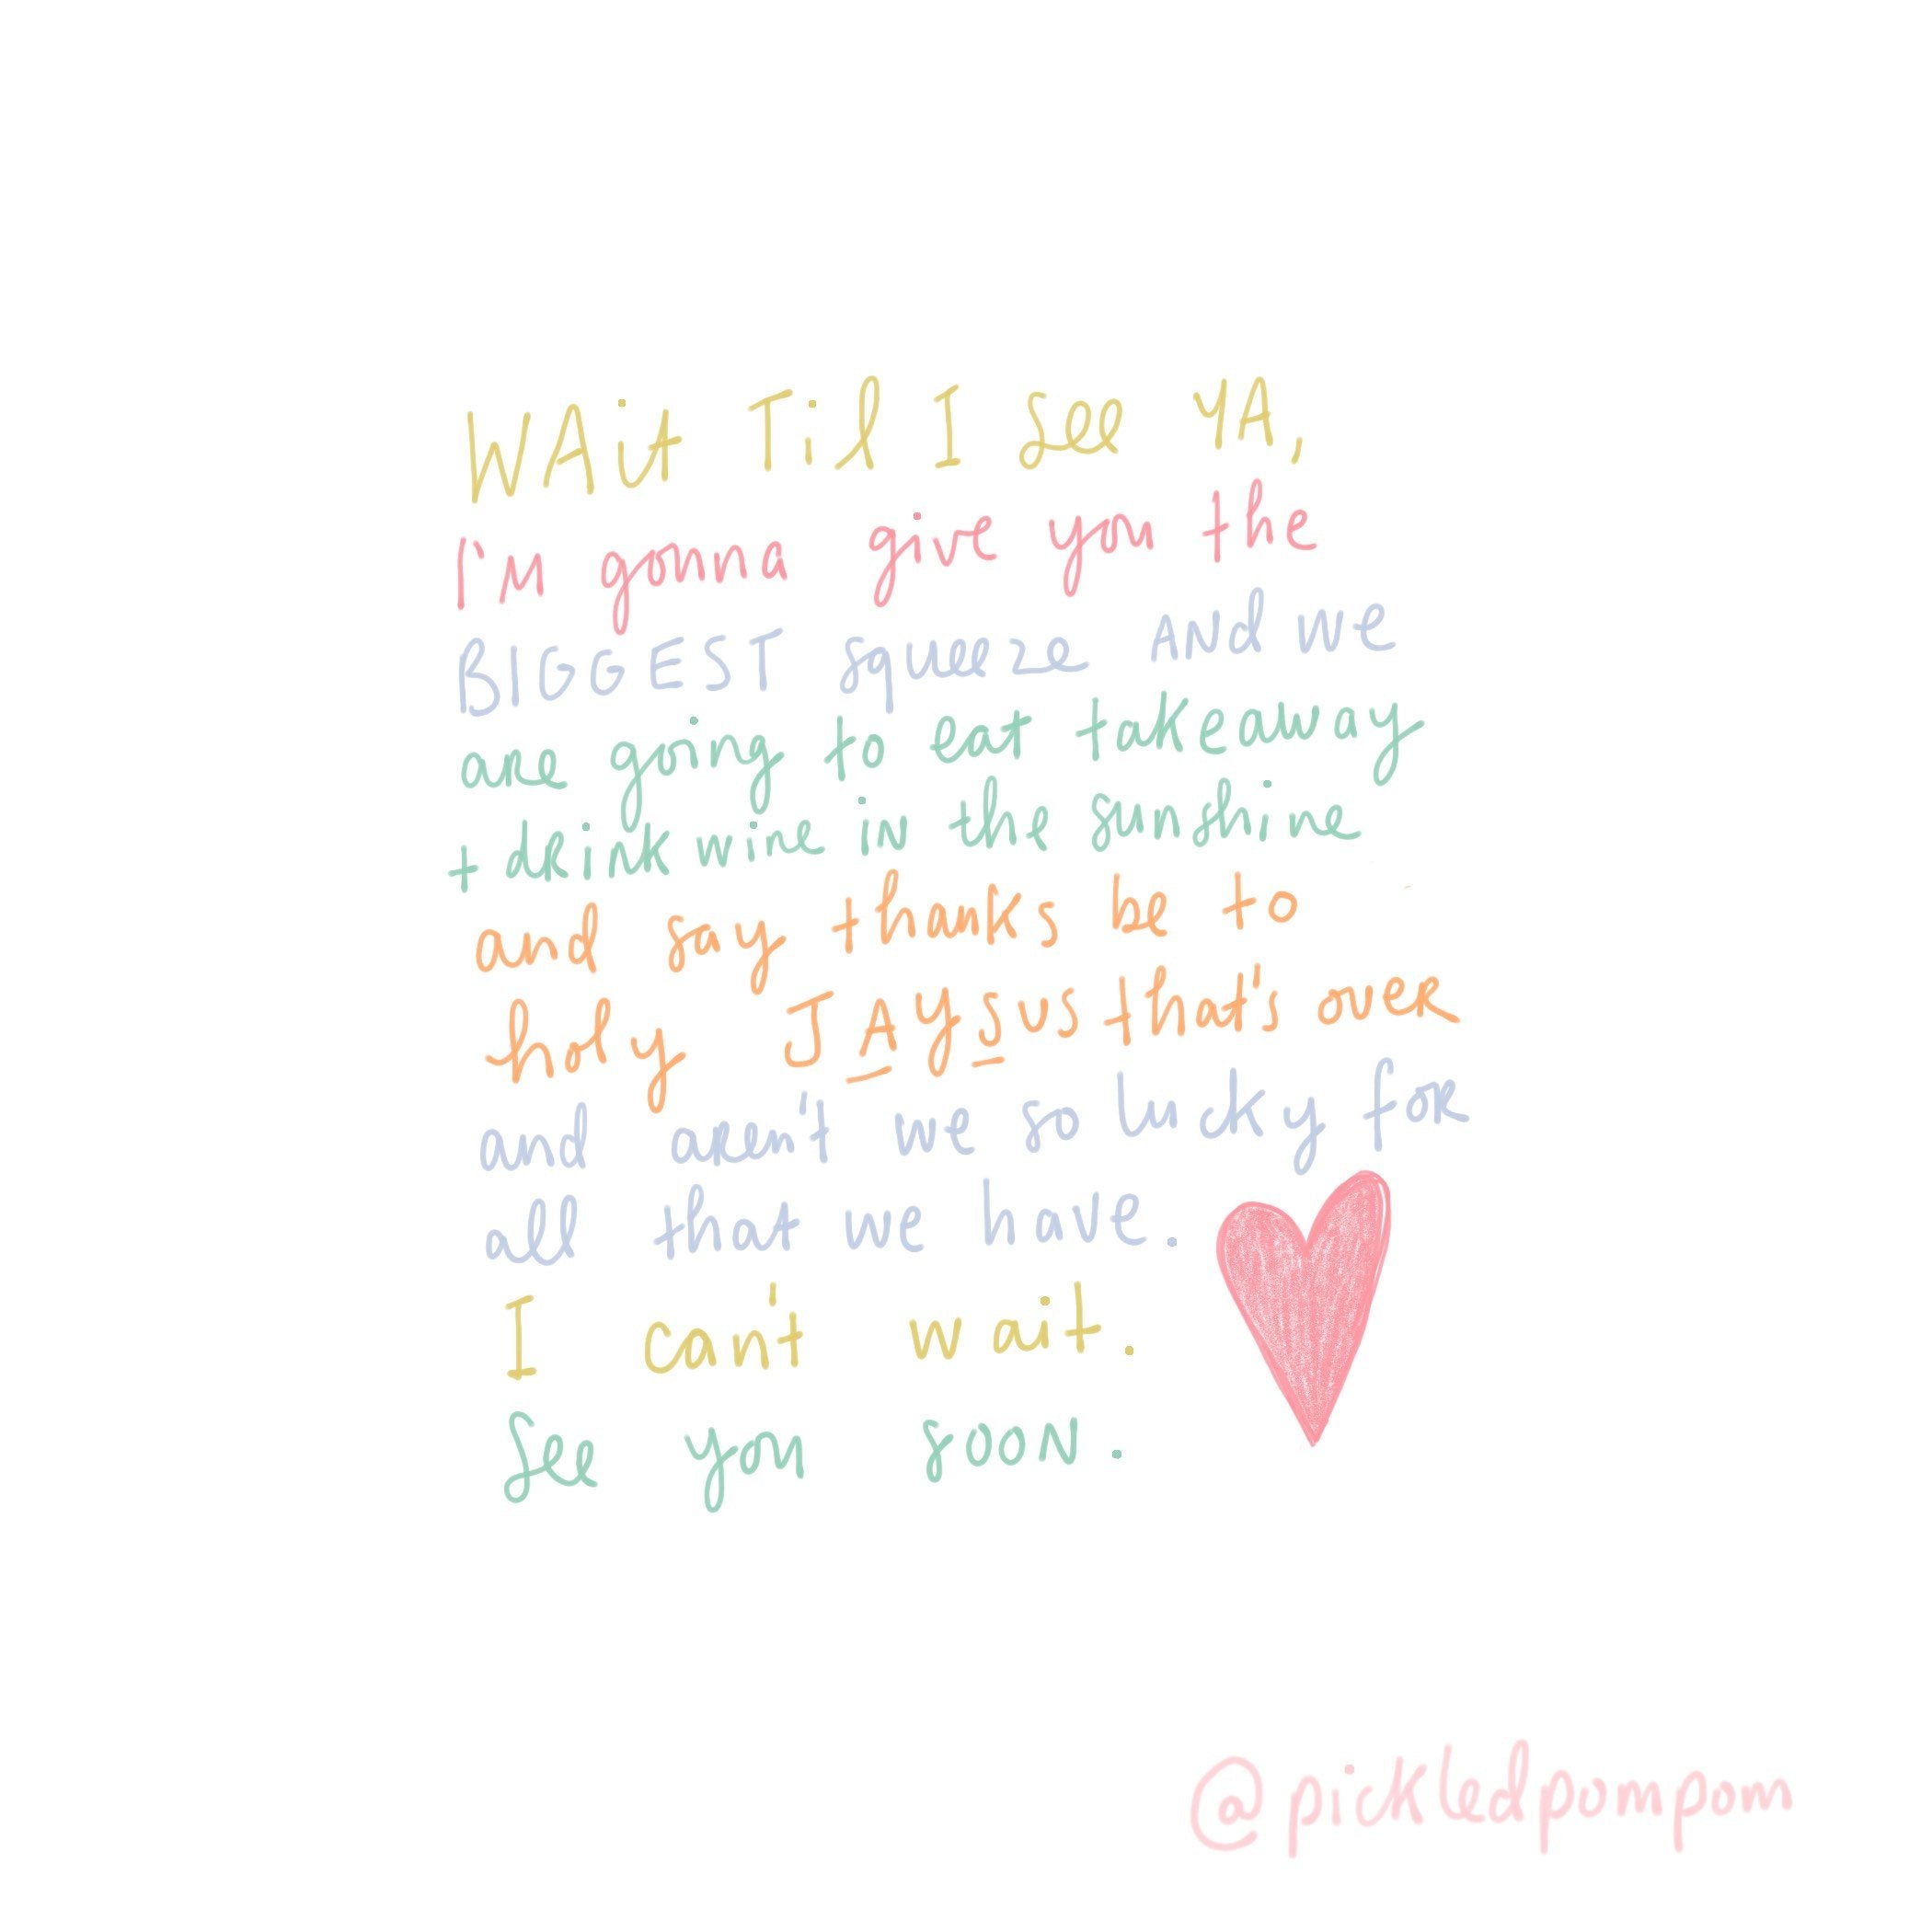 WAit Til I see YA,
I'm gonna give you the
BIGGEST squeeze ANd we
are going to eat takeaway
+ drink wine in the sunshine
and say thanks be to
holy JAYSUS that's over
and aren't we so lucky for
all that we have.
I can't wait.
See you soon.
@pickledpompom